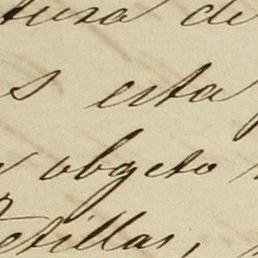 tura de
s esta
obgeto
etillas,